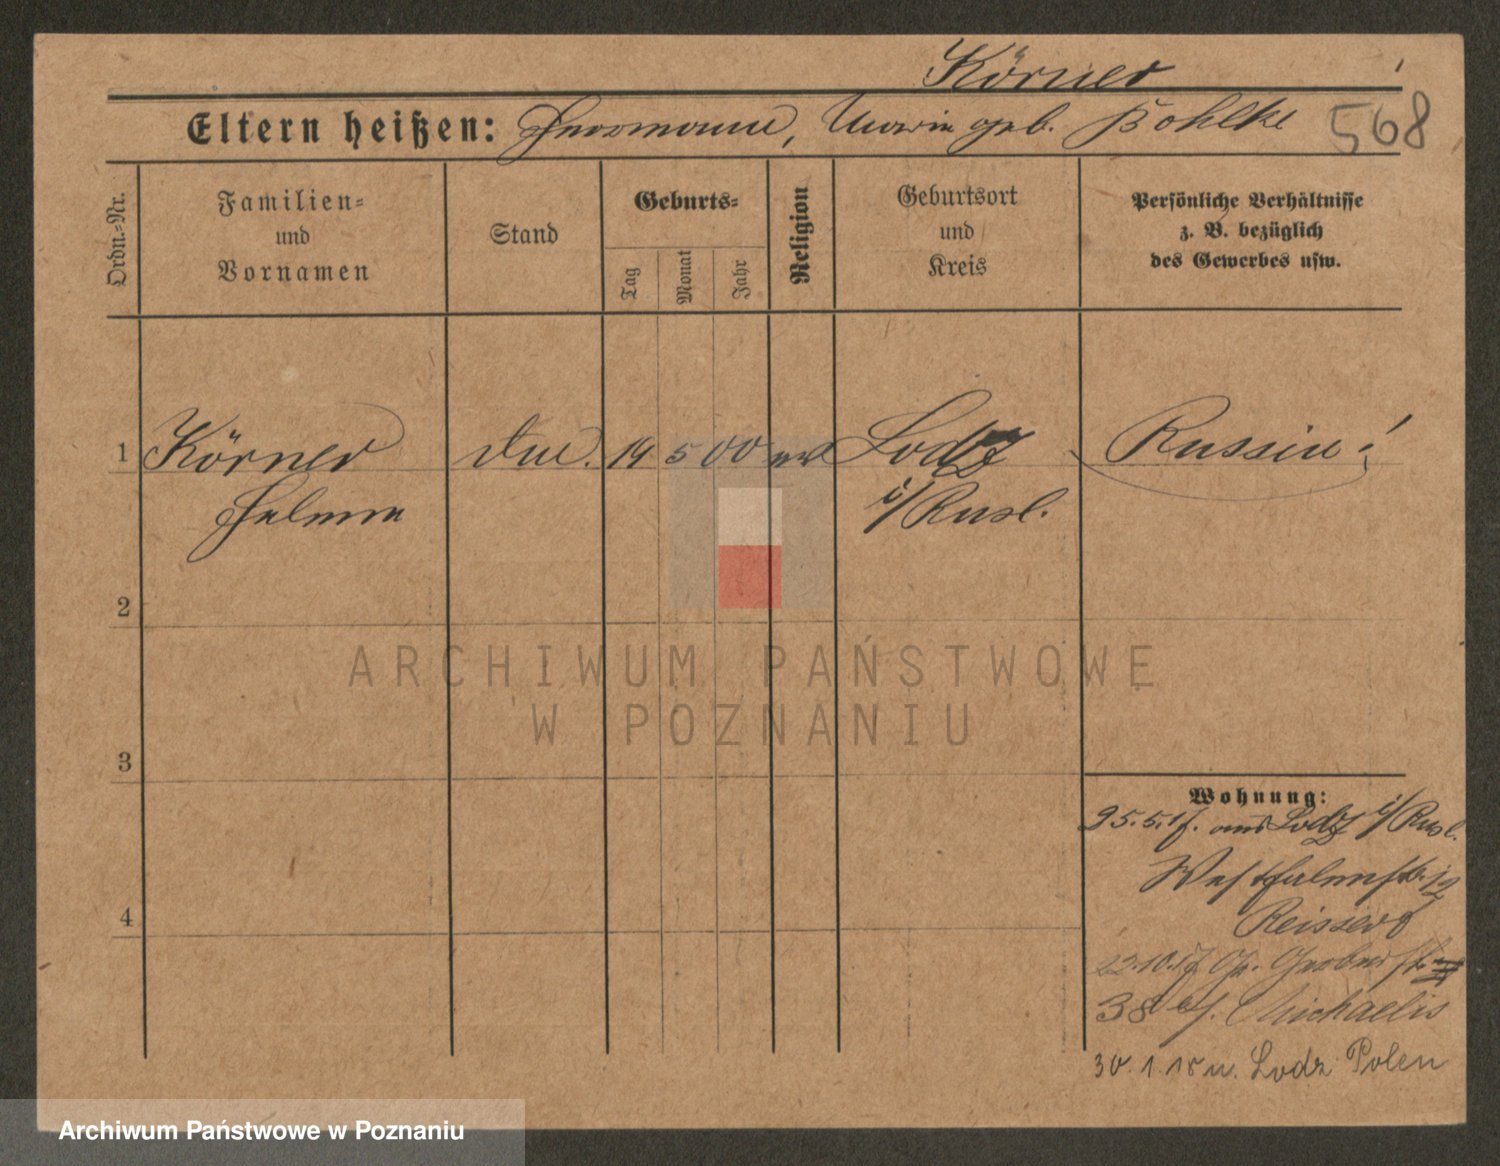 Körner
Eltern heißen: Hermann, Maria geb. Böhlke 568
Ordn.-Nr.
Familien-
und
Vornamen
Stand
Geburts-
Tag
Monat
Jahr
Religion
Geburtsort
und
Kreis
Persönliche Verhältnisse
z. B. bezüglich
des Gewerbes usw.
1 Körner 19 5 00 Lodz Russin!
Helena i/Rusl.
2
3
4
Wohnung:
25.5.17. aus Lodz i/Rusl.
Westfalenstr. 12
22.10.17
38 Michaelis
30.1.18 n. Lodz Polen
ARCHIWUM PAŃSTWOWE
W POZNANIU
Archiwum Państwowe w Poznaniu